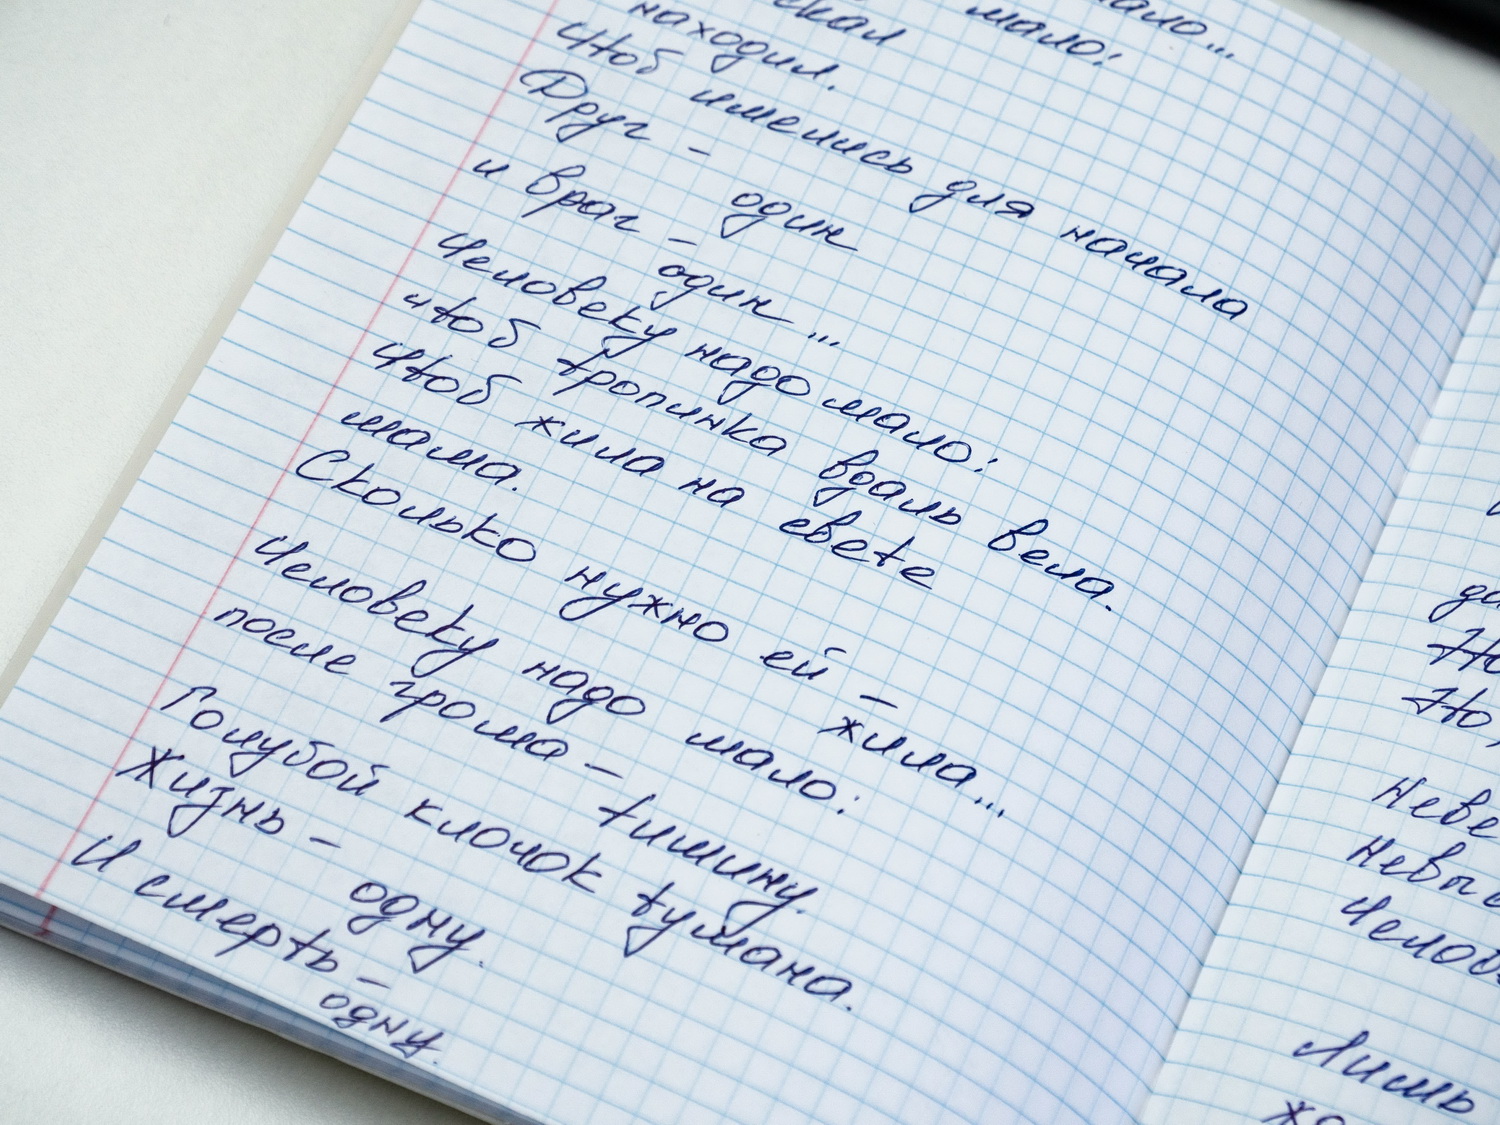 мало...
искал мало:
находил.
Чтоб имелись для начала
Друг –
один
и враг –
один...
Человеку надо мало:
чтоб тропинка вдаль вела.
Чтоб жила на свете
мама.
Сколько нужно ей –
жила...
Человеку надо мало:
после грома – тишину.
Голубой клочок тумана.
Жизнь –
одну.
И смерть –
одну.
Но,
Лишь